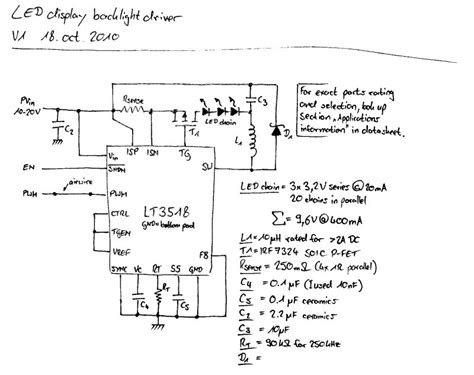 LED display backlight driver
V1 18. oct. 2010
PVin
10-20V
C2
Rsense
T1
LED chain
C3
L1
D1
For exact parts rating
and selection, look up
Section „Applications
information" in datasheet.
Vin
ISP
ISN
TG
SW
EN
SHDN
PWM
airwire
PWM
CTRL
TGEN
VREF
LT3518
GND=bottom pad
FB
SYNC
VC
RT
SS
GND
C4
RT
C5
LED chain = 3x 3,2V series @ 20mA
20 chains in parallel
Σ = 9,6V @ 400mA
L1 = 10µH rated for >2A DC
T1 = IRF7324 SOIC P-FET
Rsense = 250mΩ (4x 1Ω parallel)
C4 = 0.1µF (I used 10nF)
C5 = 0.1µF ceramics
C2 = 2.2µF ceramics
C3 = 10µF
RT = 90kΩ for 250kHz
D1 =